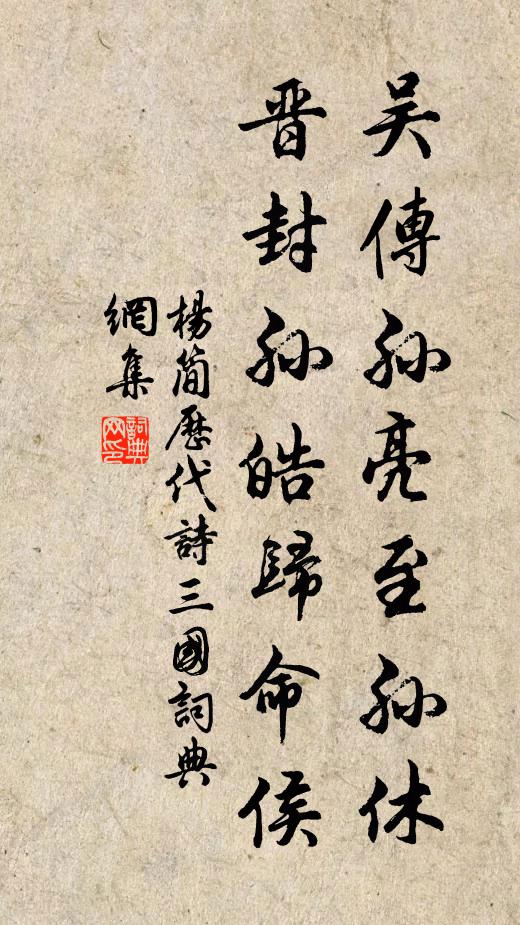 吴傳孙亮至孙休
晋封孙皓歸命侯
楊简歷代詩三國詞典
網集
詞典网印